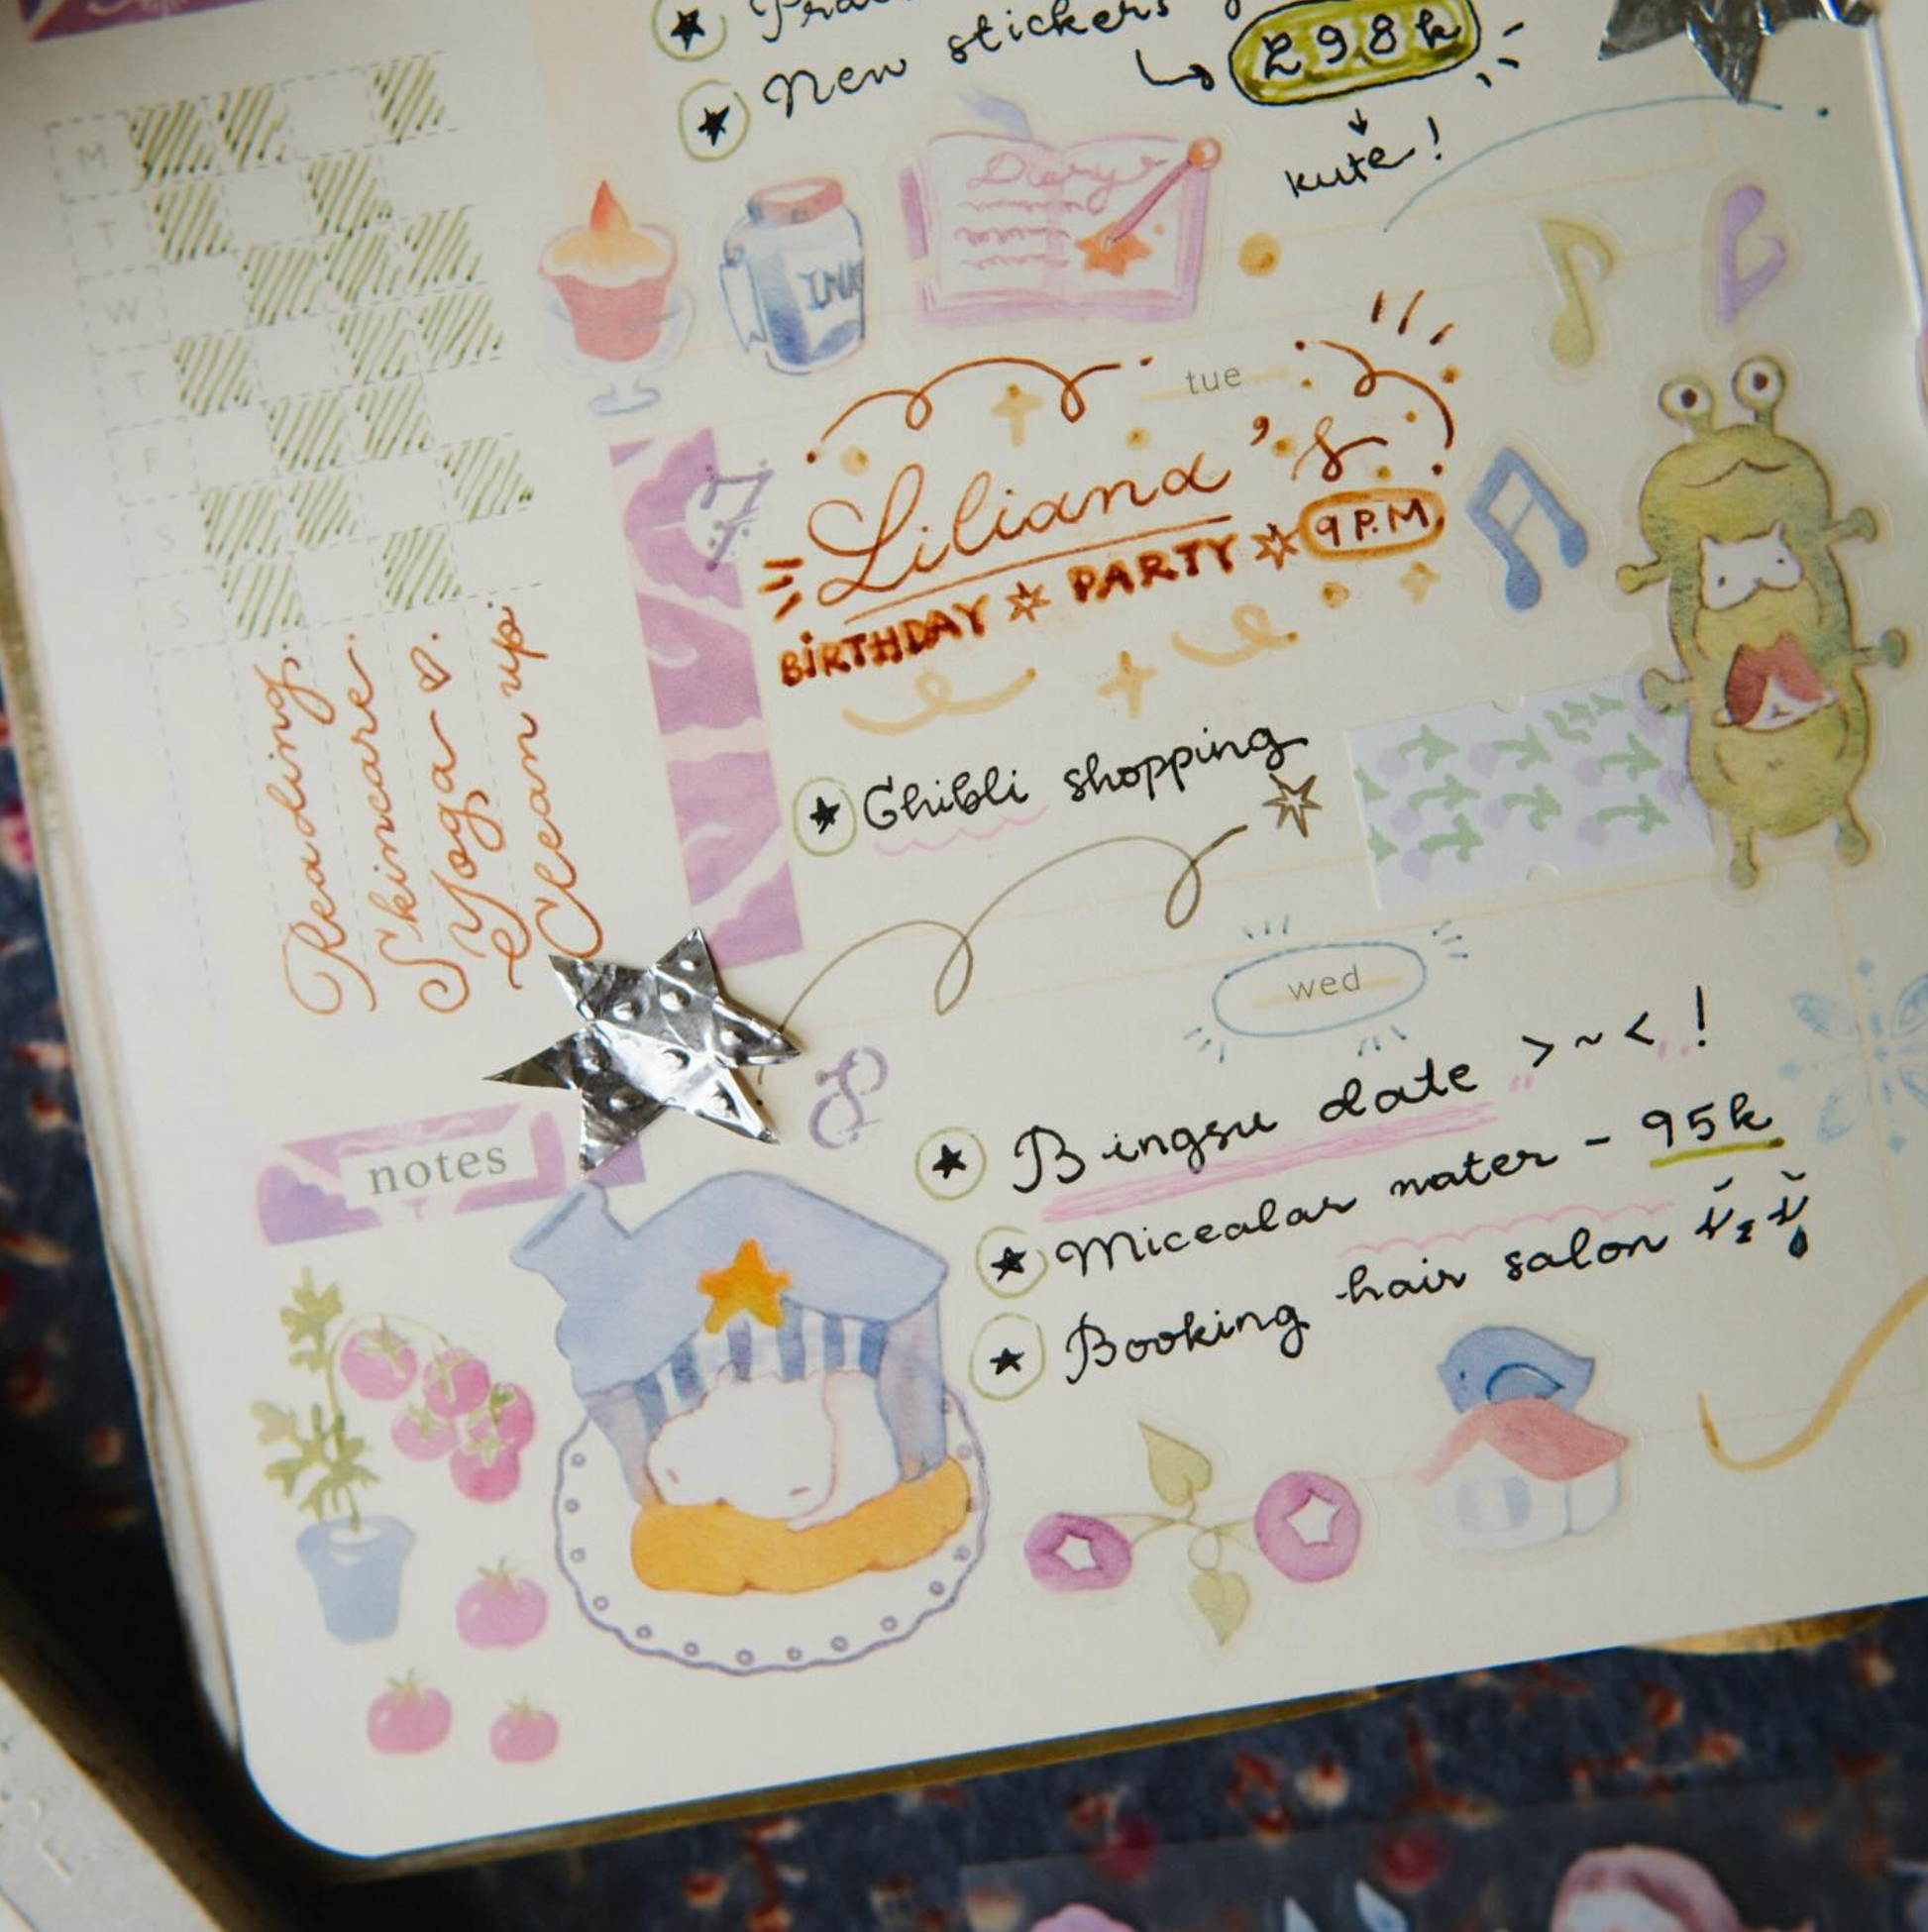 New stickers
298k
kute!
M
T
W
T
F
S
S
Reading.
Skincare.
Yoga ♡.
Clean up.
INK
Diary
tue
7
Liliana's
BIRTHDAY ☆ PARTY ☆ 9 P.M
★ Ghibli shopping
wed
8
★ Bingsu date >~< !
★ Micealar water - 95k
★ Booking hair salon
notes